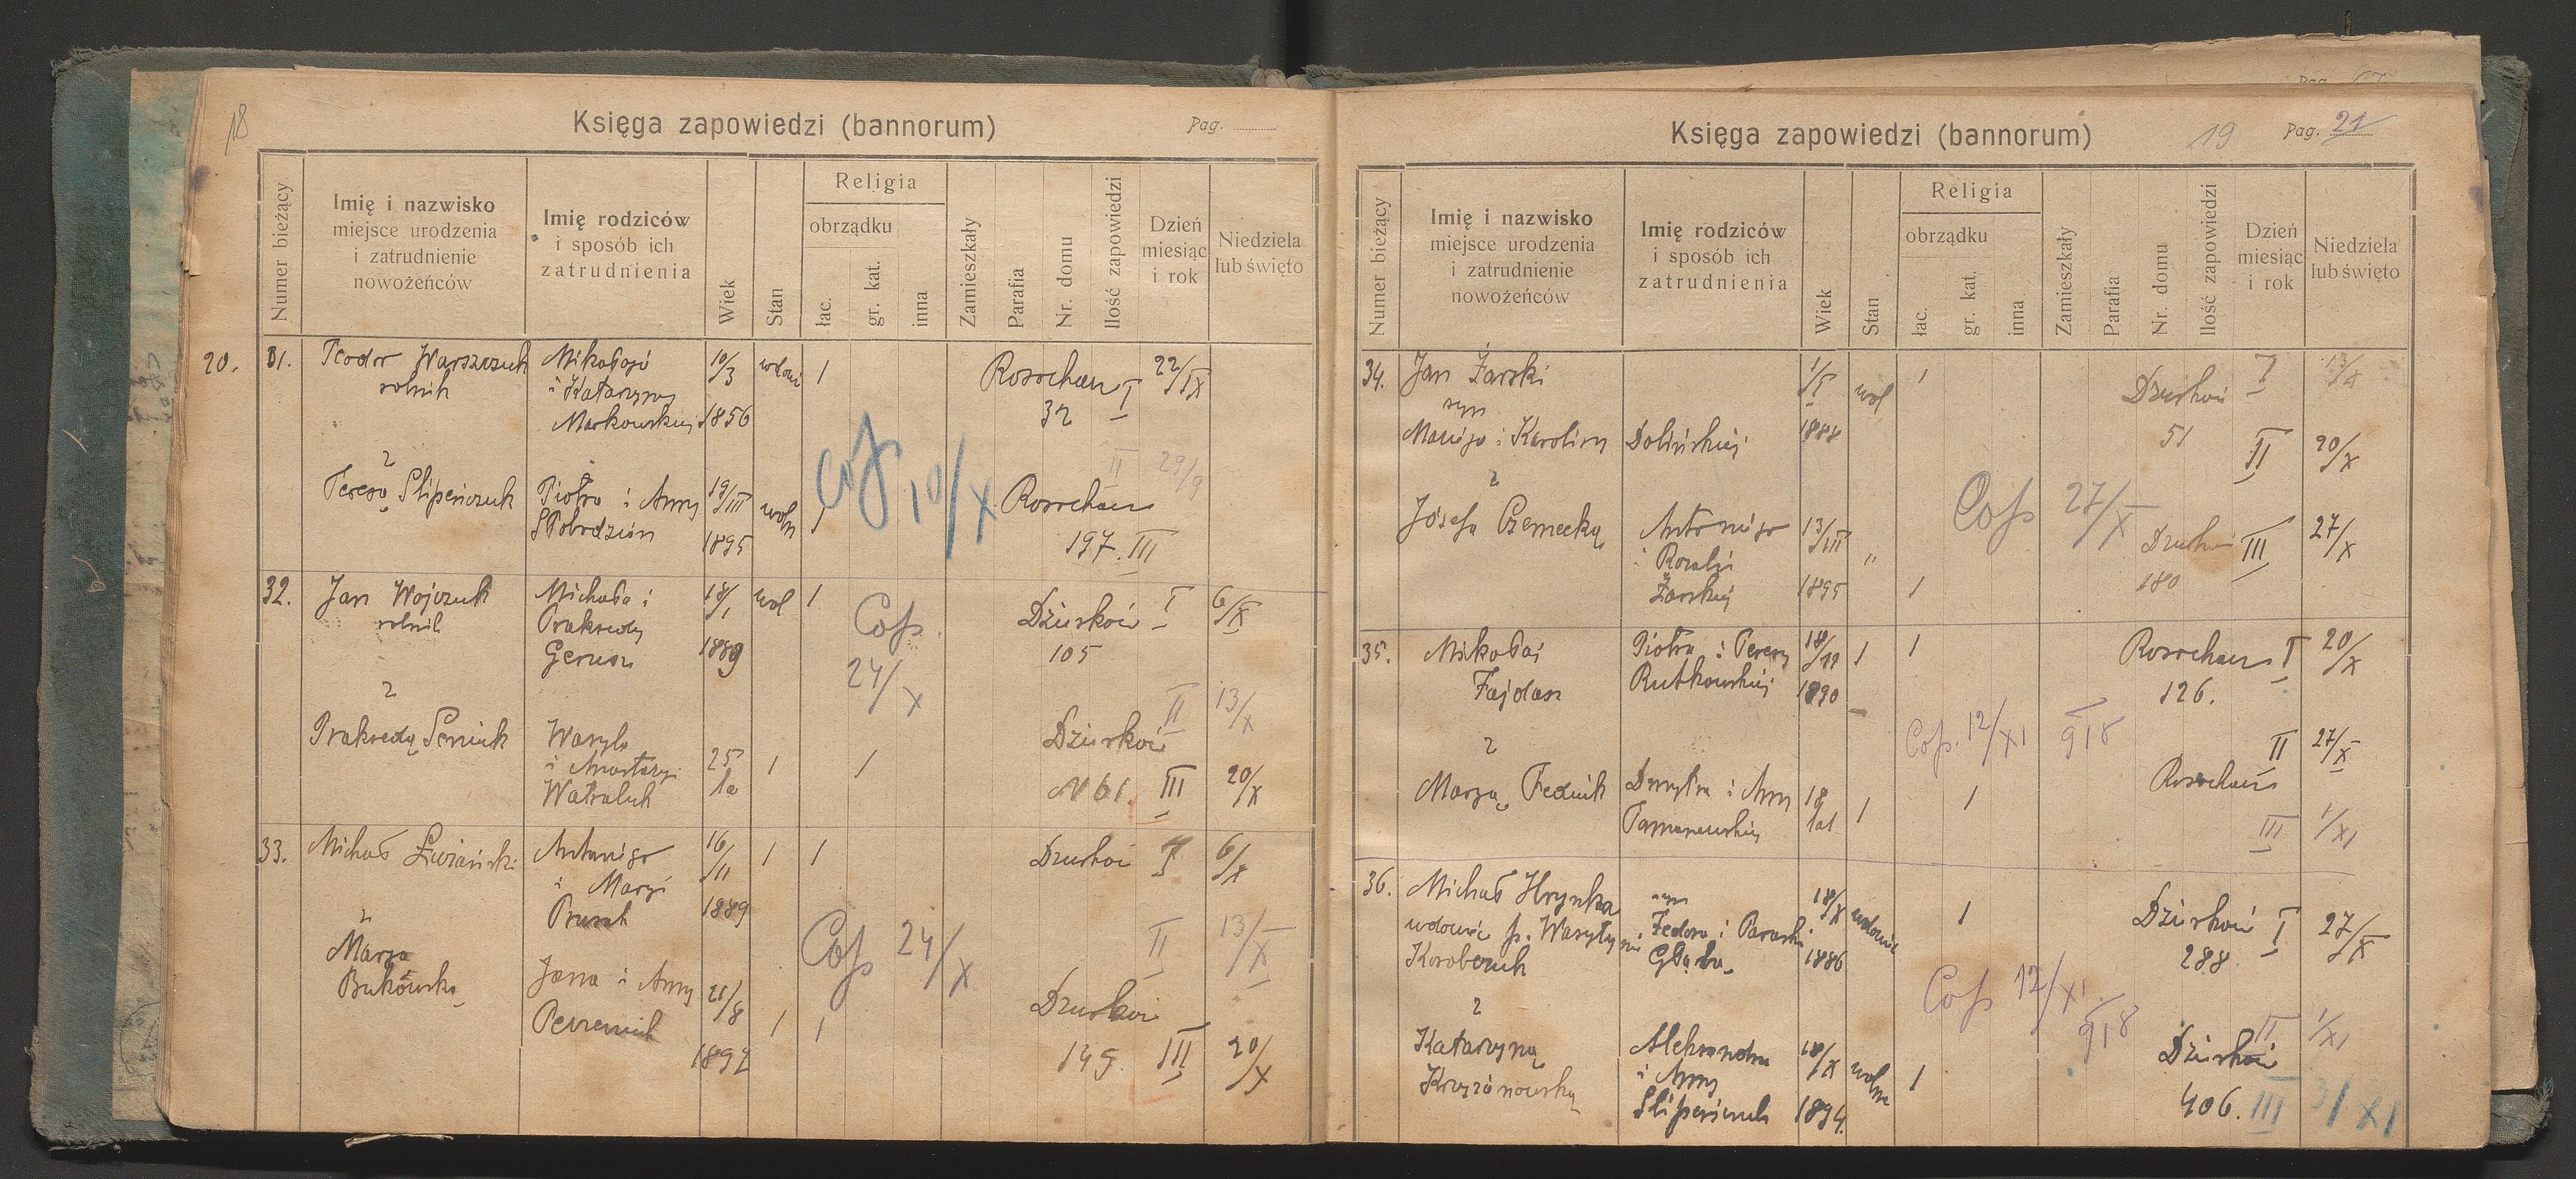 18
Księga zapowiedzi (bannorum)
Pag.
Numer bieżący
Imię i nazwisko
miejsce urodzenia
i zatrudnienie
nowożeńców
Imię rodziców
i sposób ich
zatrudnienia
Wiek
Stan
Religia
obrządku
łac.
gr. kat.
inna
Zamieszkały
Parafia
Nr. domu
Ilość zapowiedzi
Dzień
miesiąc
i rok
Niedziela
lub święto
20. 31. Teodor Warszczuk Mikołaja 10/3 wdowi 1 I 22/IX
rolnik i Katarzyny 32
Markowskiej 1856
z II 29/9
Teresą Slipeńczuk Piotra i Anny 19/III woln 1 Cop 10/X
1895 197. III
32. Jan Wojczuk Michała i 18/1 wol 1 Cop. Dżurków I 6/X
rolnik Praksedy 24/X 105
1889
z II 13/X
Praksedą Wasyla Dżurków
i Anastazyi 25 1 1
la N 61. III 20/X
33. Michał Antoniego 16/11 1 1 Dżurków I 6/X
i Maryi
Prusak 1889
z Cop 24/X II 13/X
Marya
Bukowską Jana i Anny 21/8 1 1 Dżurków
1892 149. III 20/X
Księga zapowiedzi (bannorum)
19
Pag. 21
Numer bieżący
Imię i nazwisko
miejsce urodzenia
i zatrudnienie
nowożeńców
Imię rodziców
i sposób ich
zatrudnienia
Wiek
Stan
Religia
obrządku
łac.
gr. kat.
inna
Zamieszkały
Parafia
Nr. domu
Ilość zapowiedzi
Dzień
miesiąc
i rok
Niedziela
lub święto
34. Jan Żarski wol 1 Dżurków I 13/X
syn
i Karoliny Dolińskiej 1888 51 II 20/X
z Cop 27/X
Józefą Czernecką Antoniego 13/III „ Dżurków III 27/X
i Rozalii
Żarskiej 1895 1 180
35. Mikołaj Piotra i Teresy 18/11 1 1 I 20/X
Fajdasz Rutkowskiej 1890 126.
z Cop. 12/XI 918 II 27/X
Maryą Fednik Dmytra i Anny 18 1 1
lat III 1/XI
36. Michał Hrynka syn 18/X wdowiec 1 Dżurków I 27/X
wdowiec p. Fedora i Paraski
1886 288.
z Cop 12/XI 918 II 1/XI
Katarzyną Aleksandra 10/X wolna 1 Dżurków
Krzyżanowską i Anny
1894. 406. III 3/XI